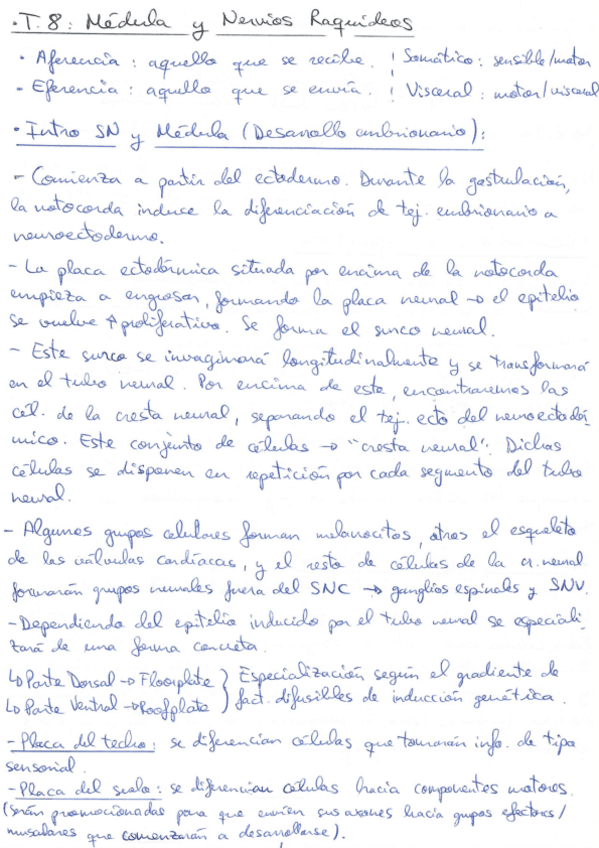 · T. 8: Médula y Nervios Raquídeos
· Aferencia: aquello que se recibe. ¦ Somático: sensible/motor
- Eferencia: aquello que se envía. ¦ Visceral: motor/visceral
· Intro SN y Médula (Desarrollo embrionario):
- Comienza a partir del ectodermo. Durante la gastrulación,
la notocorda induce la diferenciación de tej. embrionario a
neuroectodermo.
- La placa ectodérmica situada por encima de la notocorda
empieza a engrosar, formando la placa neural → el epitelio
se vuelve ↑ proliferativo. Se forma el surco neural.
- Este surco se invaginará longitudinalmente y se transformará
en el tubo neural. Por encima de este, encontraremos las
cél. de la cresta neural, separando el tej. ecto del neuroectodér
mico. Este conjunto de células → "cresta neural". Dichas
células se disponen en repetición por cada segmento del tubo
neural.
- Algunos grupos celulares forman melanocitos, otros el esqueleto
de las válvulas cardíacas, y el resto de células de la cr. neural
formarán grupos neurales fuera del SNC → ganglios espinales y SNV.
- Dependiendo del epitelio inducido por el tubo neural se especiali
zará de una forma concreta.
↳ Parte Dorsal → Floorplate } Especialización según el gradiente de
↳ Parte Ventral → Roofplate } fact. difusibles de inducción genética.
- Placa del techo: se diferencian células que tomarán info. de tipo
sensorial.
- Placa del suelo: se diferencian células hacia componentes motores.
(serán promocionadas para que envíen sus axones hacia grupos efectores/
musculares que comenzarán a desarrollarse).